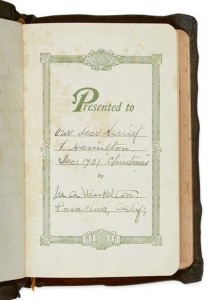 Presented to
Our dear
Hamilton
Dec. 1931 Christmas
by
Pasadena, Calif.